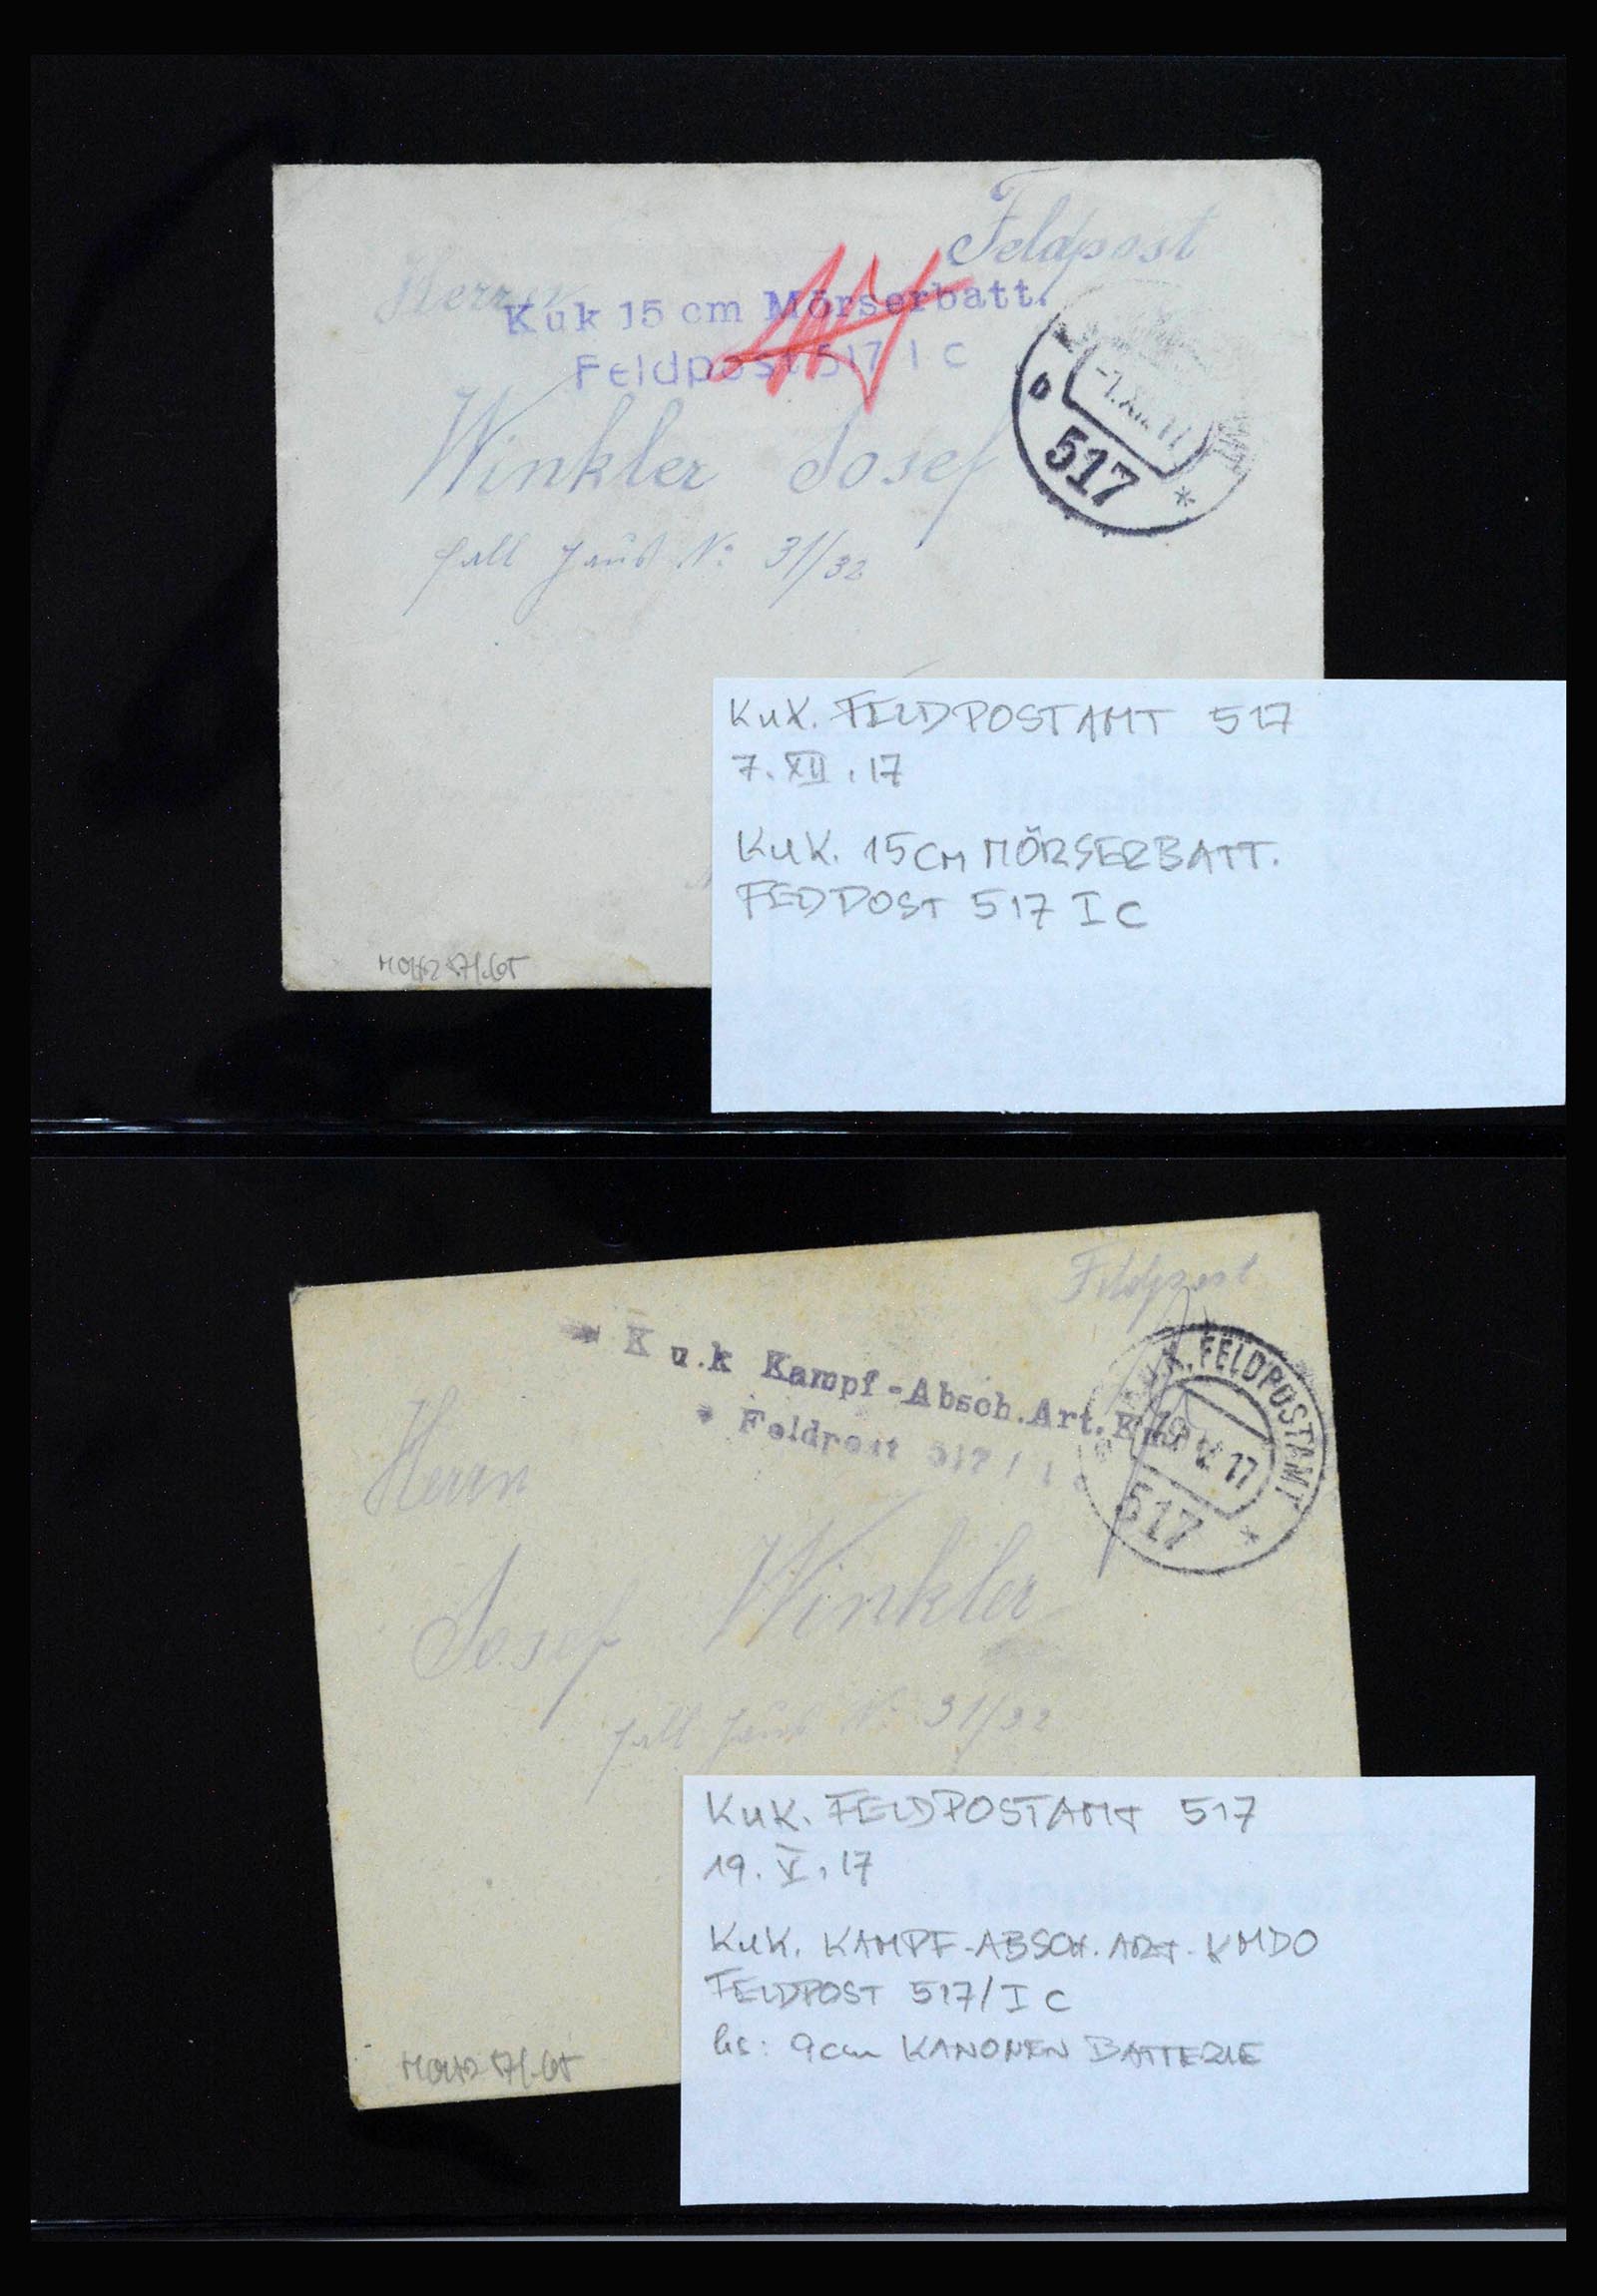 Feldpost
Herrn
Kuk 15 cm Mörserbatt.
Feldpost 517 I C
Winkler Josef
Nº 31/32
517
*
KuK. FELDPOSTAMT 517
7. XII. 17
KuK. 15cm MÖRSERBATT.
FEDPOST 517 I C
Feldpost
K u.k Kampf-Absch.Art.Kmdo
Feldpost 517 / I c
K.u.K. FELDPOSTAMT
19 17
517
*
Herrn
Josef Winkler
Nº 31/32
KuK. FELDPOSTAMT 517
19. V. 17
KuK. KAMPF-ABSCH. ART. KMDO
FELDPOST 517/I C
hs: 9cm KANONEN BATTERIE